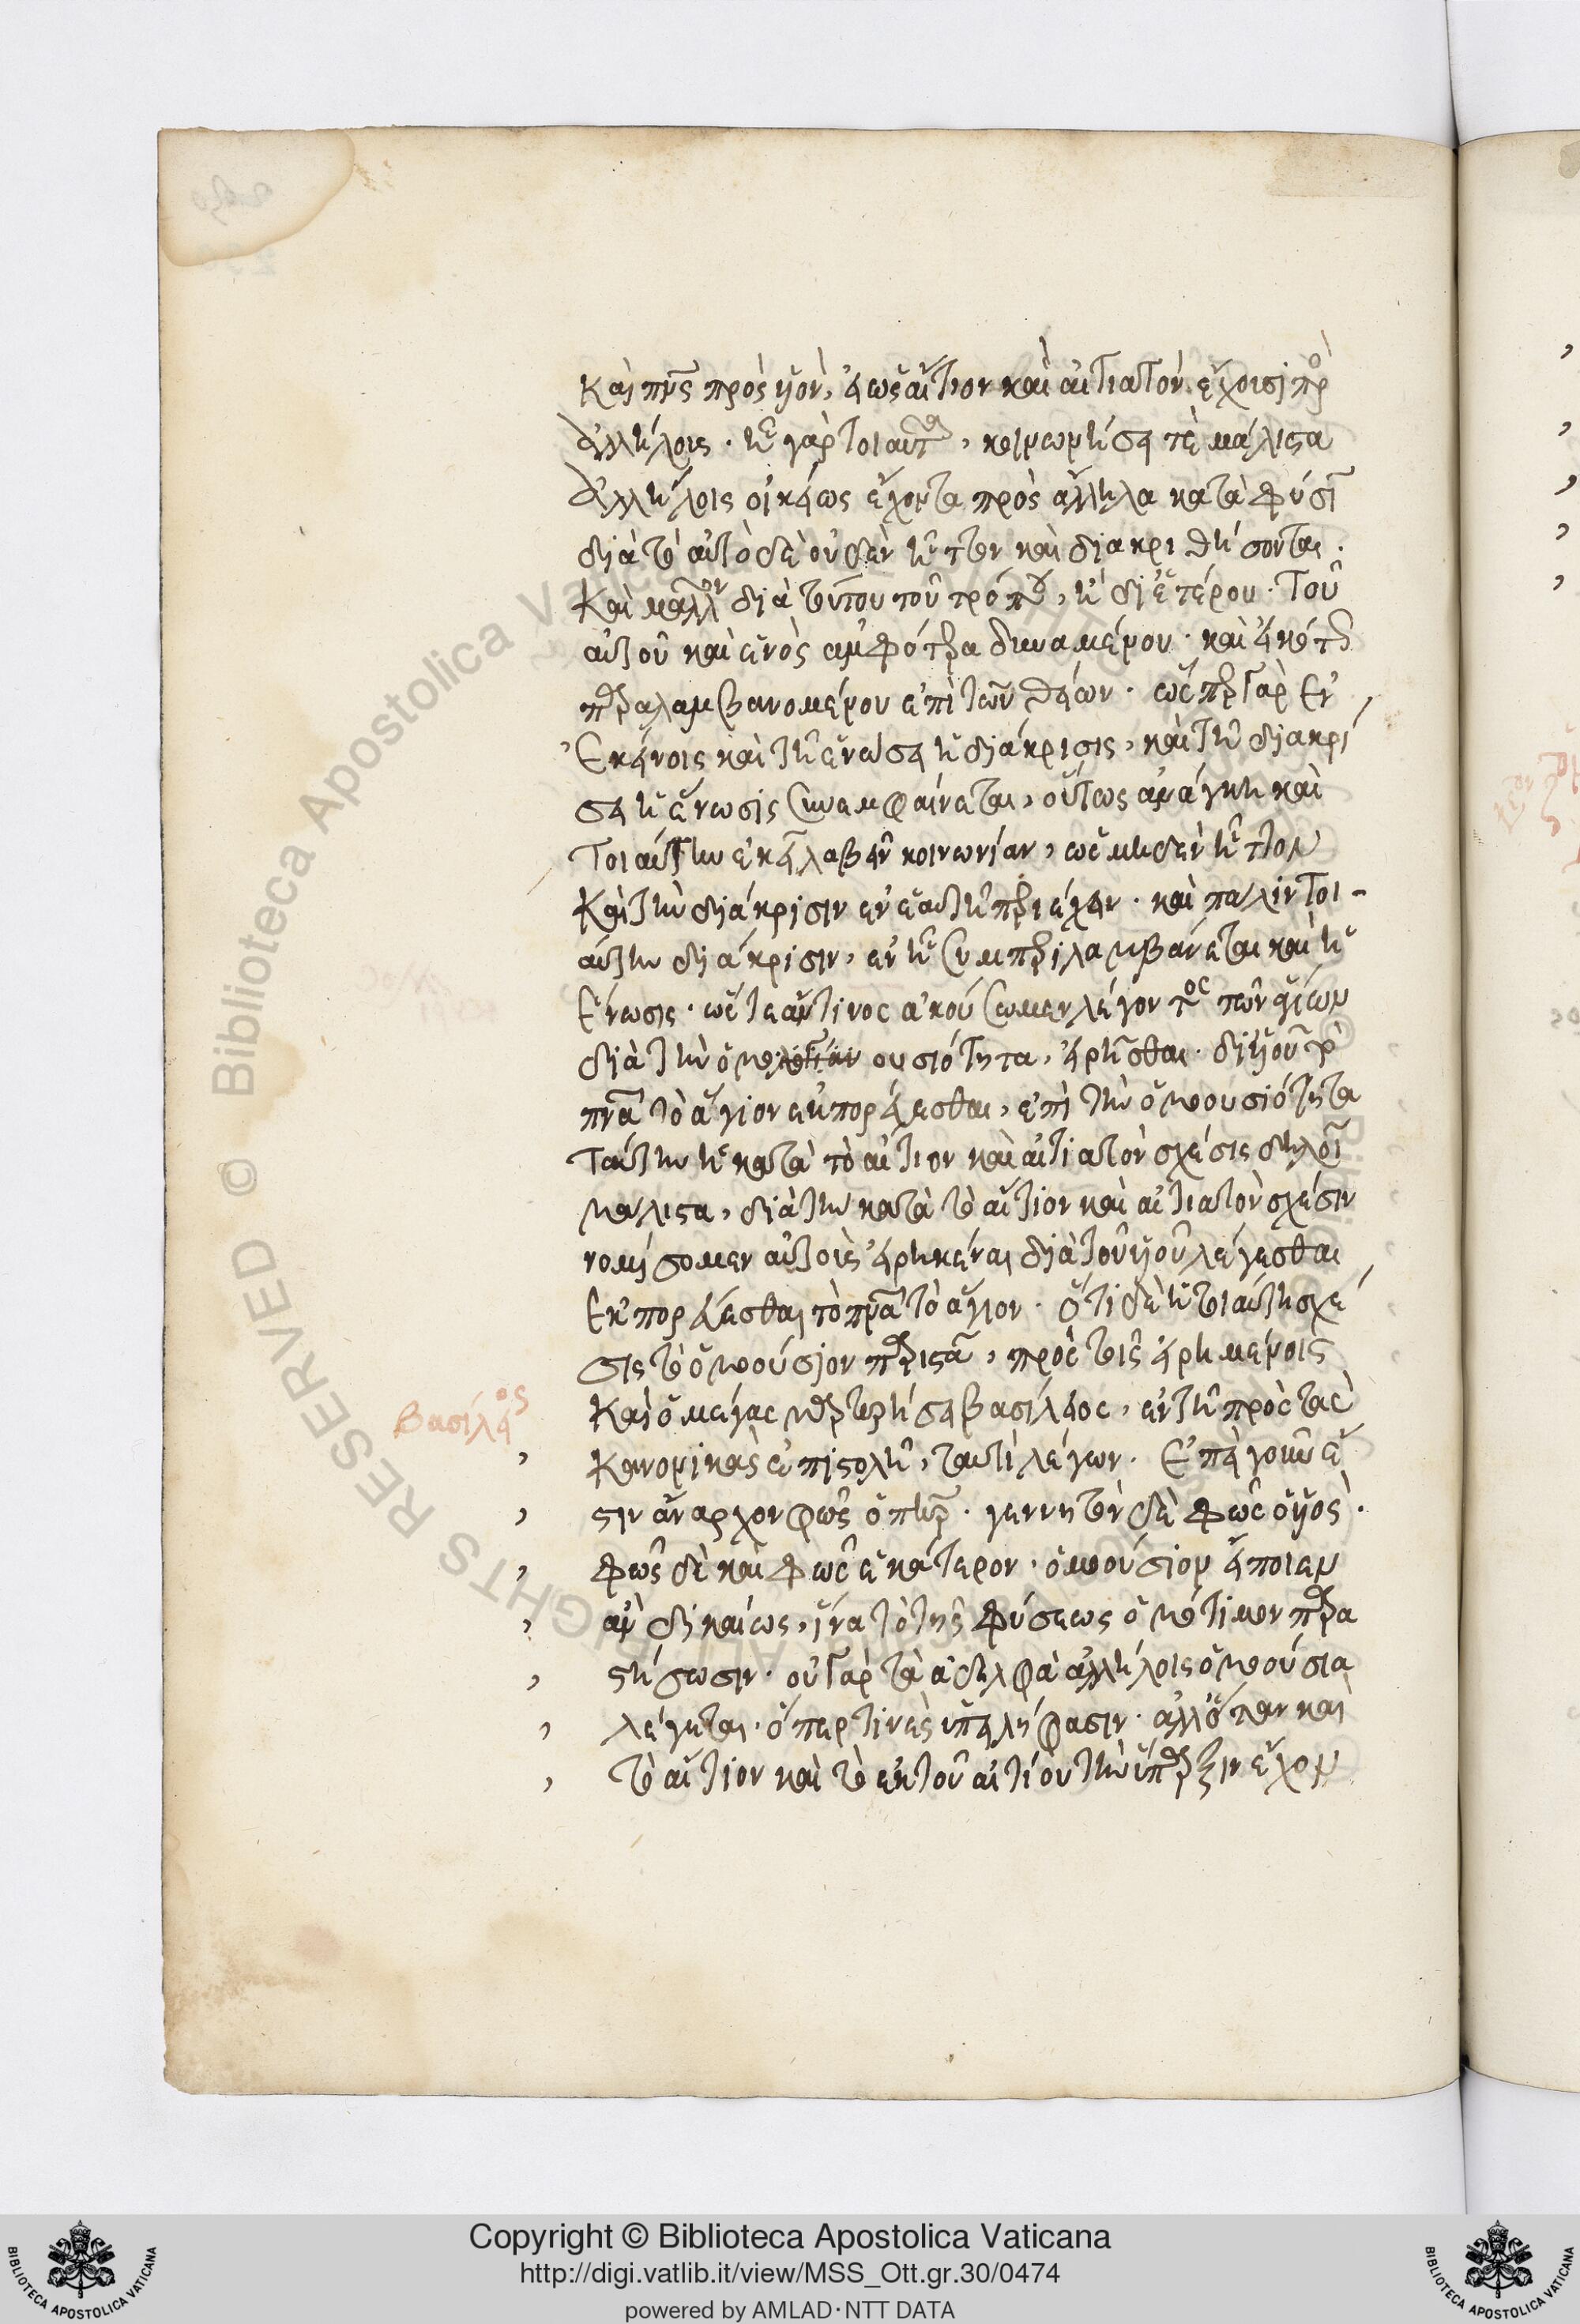 καὶ πνς πρὸς υἱὸν, εἰ ὡς αἴτιον καὶ αἰτιατὸν ἔχοισι πρὸ
ἀλλήλοις. ἡ γὰρ τοιαύτη, κοινωνήσει τὲ μάλιστα
ἀλλήλοις οἰκείως ἔχοντα πρὸς ἄλληλα κατὰ φύσιν
διὰ τὸ αὐτὸ δὲ οὐδὲν ἧττον καὶ διακριθήσονται.
καὶ μᾶλλον διὰ τούτου τοῦ τρόπου, ἢ δι' ἑτέρου. Τοῦ
αὐτοῦ καὶ ἑνὸς ἀμφότερα δυναμένου. καὶ εἰκότως
παραλαμβανομένου ἐπὶ τῶν θείων. ὥσπερ γὰρ ἐν
ἐκείνοις καὶ τῇ ἑνώσει ἡ διάκρισις, καὶ τῇ διακρί
σει ἡ ἕνωσις συνεμφαίνεται, οὕτως ἀνάγκη καὶ
τοιαύτην ἐκεῖ λαβεῖν κοινωνίαν, ὡς μηδὲν ἧττον
καὶ τὴν διάκρισιν ἐν ἑαυτῇ περιέχειν. καὶ πάλιν τοι-
αύτην διάκρισιν, ἐν ᾗ συμπεριλαμβάνεται καὶ ἡ
ἕνωσις. ὥστε ἄν τινος ἀκούσωμεν λέγοντος τῶν ἁγίων
διὰ τὴν ὁμο ουσιότητα, εἰρῆσθαι. δι' υἱοῦ τὸ
πνα τὸ ἅγιον ἐκπορεύεσθαι, ἐπεὶ τὴν ὁμοουσιότητα
ταύτην ἡ κατὰ τὸ αἴτιον καὶ αἰτιατὸν σχέσις δηλοῖ
μάλιστα, διὰ τὴν κατὰ τὸ αἴτιον καὶ αἰτιατὸν σχέσιν
νομίσομεν αὐτοὺς εἰρηκέναι διὰ τοῦ υἱοῦ λέγεσθαι
ἐκπορεύεσθαι τὸ πνα τὸ ἅγιον. ὅτι δὲ ἡ τοιαύτη σχέ
σις τὸ ὁμοούσιον παριστᾷ, πρὸς τοῖς εἰρημένοις
καὶ ὁ μέγας μαρτυρήσει βασίλειος, ἐν τῇ πρὸς τὰς
Βασίλειος
κανονικὰς ἐπιστολῇ, ταυτὶ λέγων. Ἐπεὶ γοῦν ἐ
στιν ἄναρχον φῶς ὁ πατήρ. γεννητὸν δὲ φῶς ὁ υἱός.
φῶς δὲ καὶ φῶς ἑκάτερον. ὁμοούσιον εἶποιεν
ἂν δικαίως, ἵνα τὸ τῆς φύσεως ὁμότιμον παρα
στήσωσιν. οὐ γὰρ τὰ ἀδελφὰ ἀλλήλοις ὁμοούσια
λέγεται. ὅπερ τινὲς ὑπειλήφασιν. ἀλλ' ὅταν καὶ
τὸ αἴτιον καὶ τὸ ἐκ τοῦ αἰτίου τὴν ὕπαρξιν ἔχον
Copyright © Biblioteca Apostolica Vaticana
http://digi.vatlib.it/view/MSS_Ott.gr.30/0474
powered by AMLAD·NTT DATA